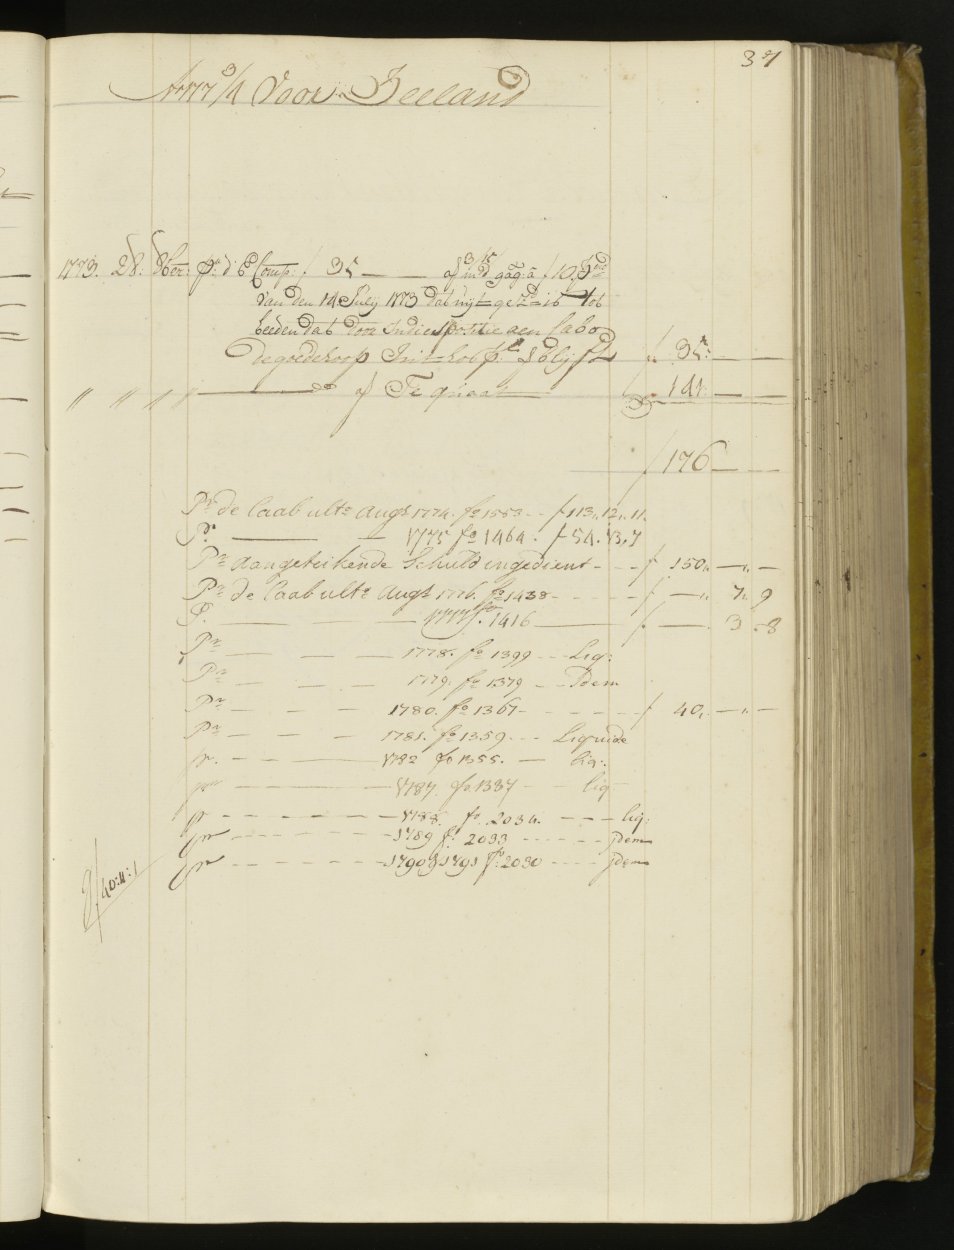 37
A° 1773/4 Voor Zeeland
1773. 28: 8ber: P:r d' E Comp: f 35 — — af 3 15/ md gag: a f 10 Pmd
van den 14 July 1773 dat uijt gez: is tot
heeden dat door Indispositie aen Cabo
de goede hoop In't hosp:l blijft „ 35: — —
„ „ „ „ — do af Te quaat „ 141: — —
f 176 — —
P:r de Caab ult:o Aug:t 1774. f:o 1583 - f 113,, 12,, 11.
P:r — — 1775 f:o 1464. f 54. 13, 7
P:r aangeteikende Schuld ingedient - - - f 150,, —,, —
P:r de Caab ult:o Aug:t 1776. f:o 1438 - - - - - f —,, 7,, 9
P:r — — 1777 f:o 1416 — f — . 3 - 8
P:r — — — 1778. f:o 1399 - - Liq:
P:r — — — 1779. f:o 1379 - - Idem
P:r — — — 1780. f:o 1367 - - - - - - f 40,, —,, —
P:r — — — 1781. f:o 1359 - - - Liquide
pr. - — — 1782 fo 1355. — liq:
pr — — 1787. fo 1337 - - liq
pr - - - - - - - 1788. f:o 2034. - - - liq:
pr - - - - - - - 1789 f:o 2033 - - - - - jdem
pr - - - - - - - 1790 & 1791 f:o 2030 - - - - jdem
f 40:11:1